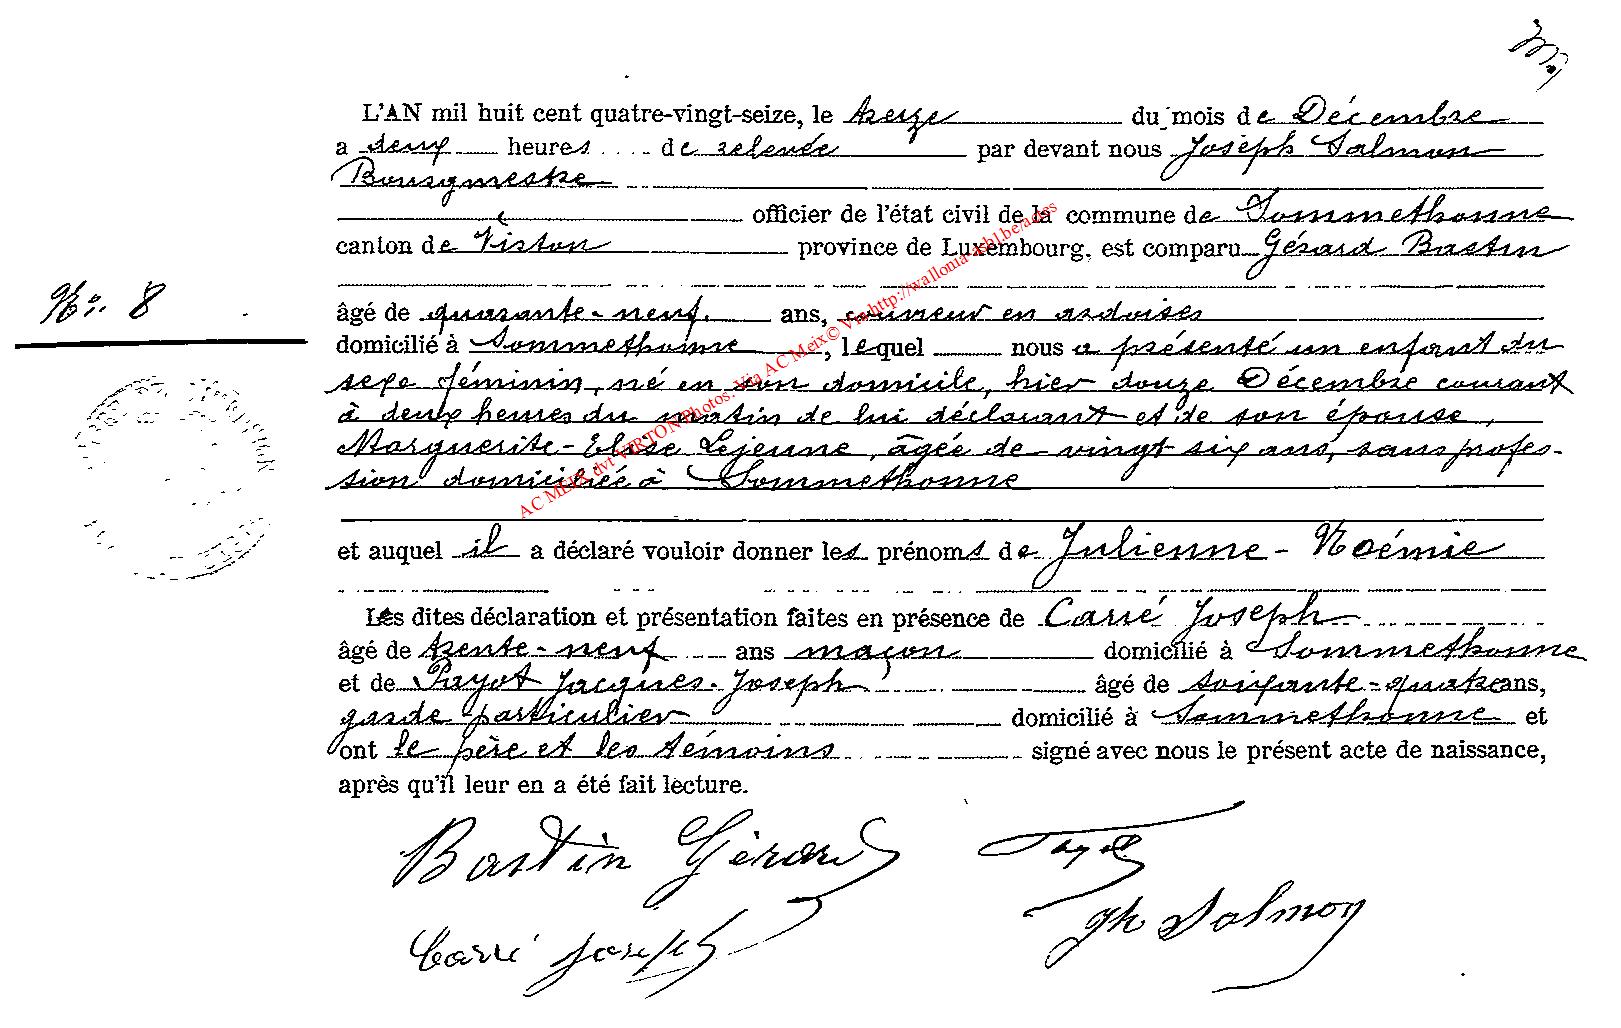 L'AN mil huit cent quatre-vingt-seize, le treize du mois de Décembre
a deux heures de relevée par devant nous Joseph Salmon
Bourgmestre
officier de l'état civil de la commune de Sommethonne
canton de Virton province de Luxembourg, est comparu Gérard Bastin
No. 8
âgé de quarante-neuf ans, couvreur en ardoises
domicilié à Sommethonne, lequel nous a présenté un enfant du
sexe féminin, né en son domicile, hier douze Décembre courant
à deux heures du matin de lui déclarant et de son épouse,
Marguerite-Elise Lejeune, âgée de vingt six ans, sans profes-
sion domiciliée à Sommethonne
et auquel il a déclaré vouloir donner les prénoms de Julienne-Noémie
Les dites déclaration et présentation faites en présence de Carré Joseph
âgé de trente-neuf ans maçon domicilié à Sommethonne
et de Payot Jacques-Joseph âgé de soixante-quatre ans,
garde particulier domicilié à Sommethonne et
ont le père et les témoins signé avec nous le présent acte de naissance,
après qu'il leur en a été fait lecture.
Bastin Gérard Payot
Carré Joseph Jh Salmon
AC MEIX dvt VIRTON Photos. Via AC Meix© Via http://wallonia-asbl.be/actes